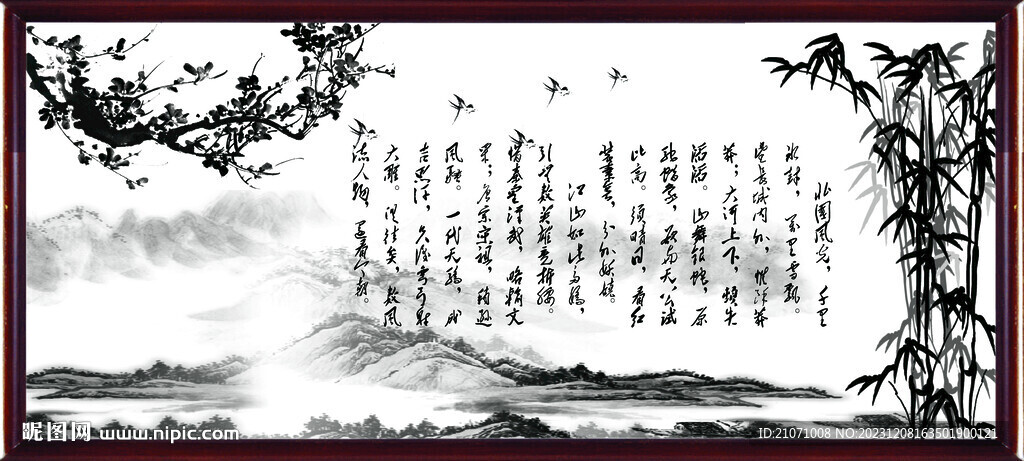 北国风光，千里
冰封，万里雪飘。
望长城内外，惟馀莽
莽；大河上下，顿失
滔滔。山舞银蛇，原
驰蜡象，欲与天公试
比高。须晴日，看红
装素裹，分外妖娆。
江山如此多娇，
引无数英雄竞折腰。
惜秦皇汉武，略输文
采；唐宗宋祖，稍逊
风骚。一代天骄，成
吉思汗，只识弯弓射
大雕。俱往矣，数风
流人物，还看今朝。
昵图网 www.nipic.com
ID:21071008 NO:20231208163501900121